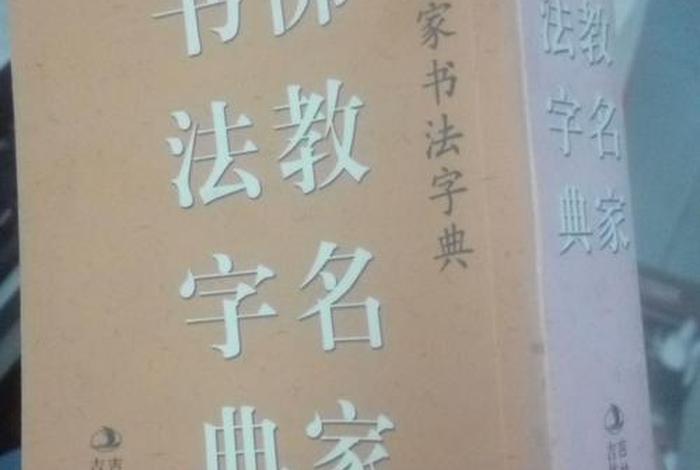 佛教名家
书法字典
家书法字典
教名家
法字典
吉
吉